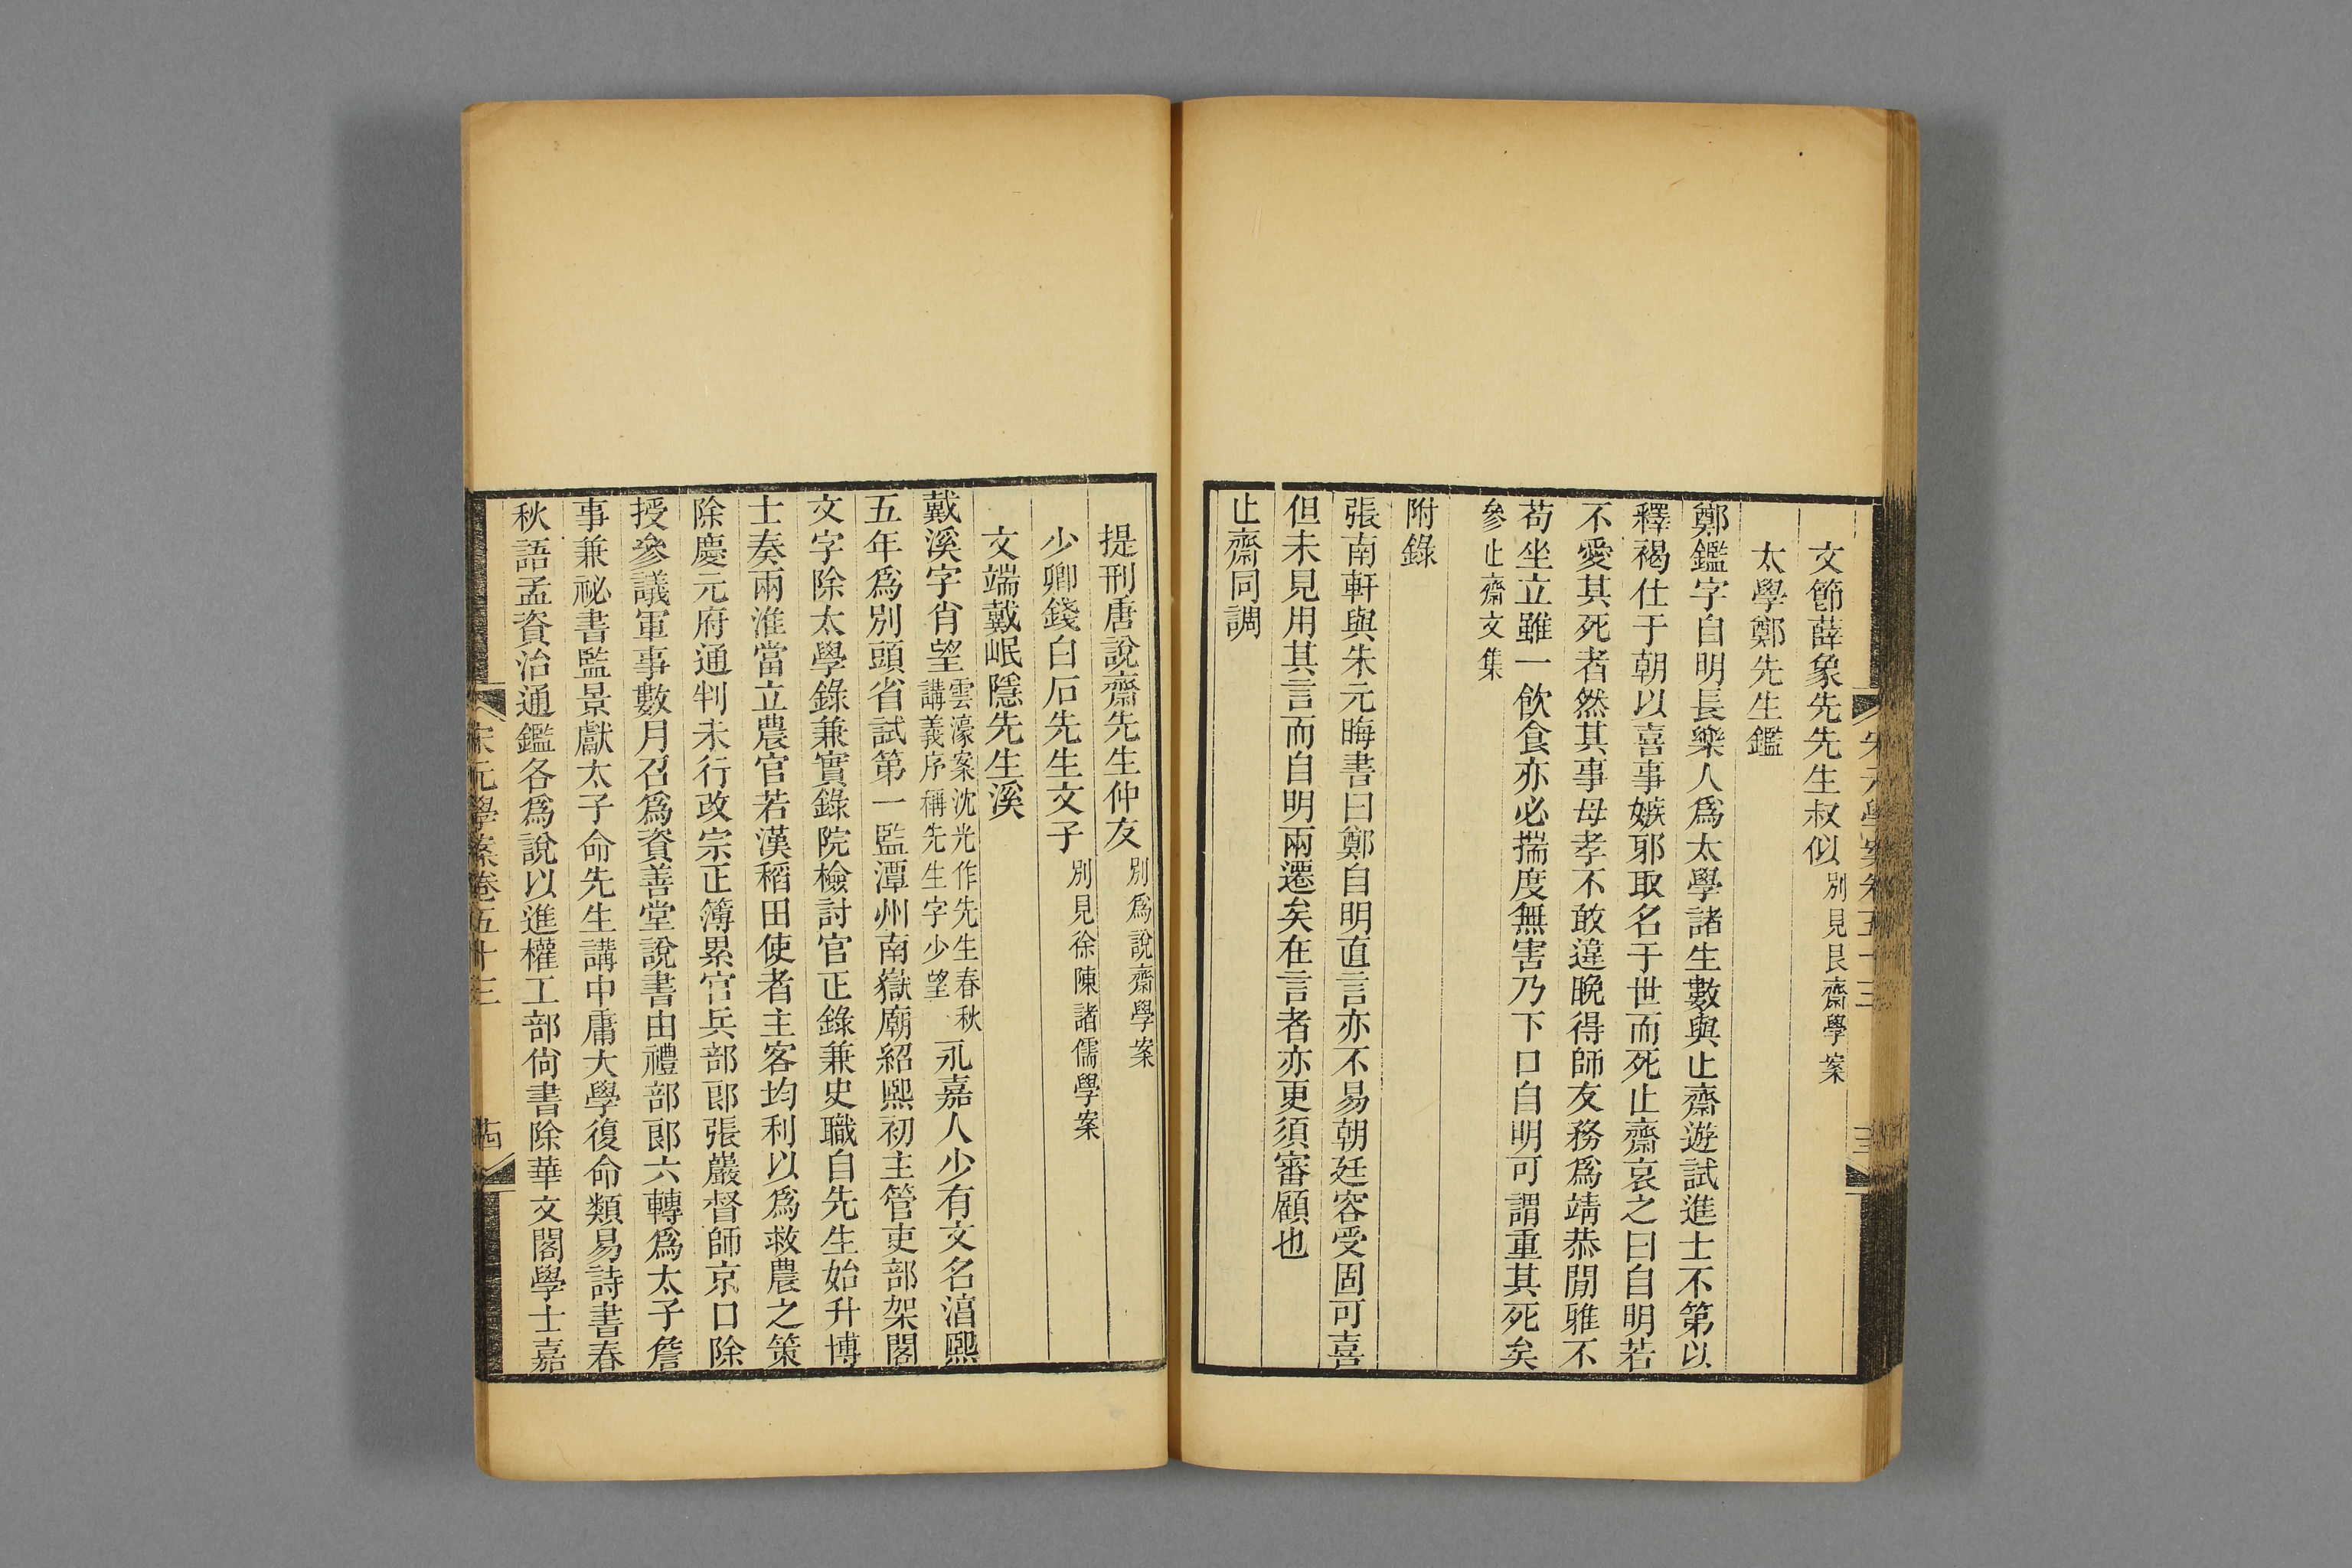 文節薛象先先生叔似別見艮齋學案
太學鄭先生鑑
鄭鑑字自明長樂人爲太學諸生數與止齋遊試進士不第以
釋褐仕于朝以喜事嫉邪取名于世而死止齋哀之曰自明若
不愛其死者然其事母孝不敢違晚得師友務爲靖恭閒雅不
苟坐立雖一飲食亦必揣度無害乃下口自明可謂重其死矣
參止齋文集
附錄
張南軒與朱元晦書曰鄭自明直言亦不易朝廷容受固可喜
但未見用其言而自明兩遷矣在言者亦更須審顧也
止齋同調
提刑唐說齋先生仲友別爲說齋學案
少卿錢白石先生文子別見徐陳諸儒學案
文端戴岷隱先生溪
戴溪字肖望雲濠案沈光作先生春秋講義序稱先生字少望永嘉人少有文名淳熙
五年爲別頭省試第一監潭州南嶽廟紹熙初主管吏部架閣
文字除太學錄兼實錄院檢討官正錄兼史職自先生始升博
士奏兩淮當立農官若漢稻田使者主客均利以爲救農之策
除慶元府通判未行改宗正簿累官兵部郞張巖督師京口除
授參議軍事數月召爲資善堂說書由禮部郞六轉爲太子詹
事兼祕書監景獻太子命先生講中庸大學復命類易詩書春
秋語孟資治通鑑各爲說以進權工部尙書除華文閣學士嘉
宋元學案卷五十三